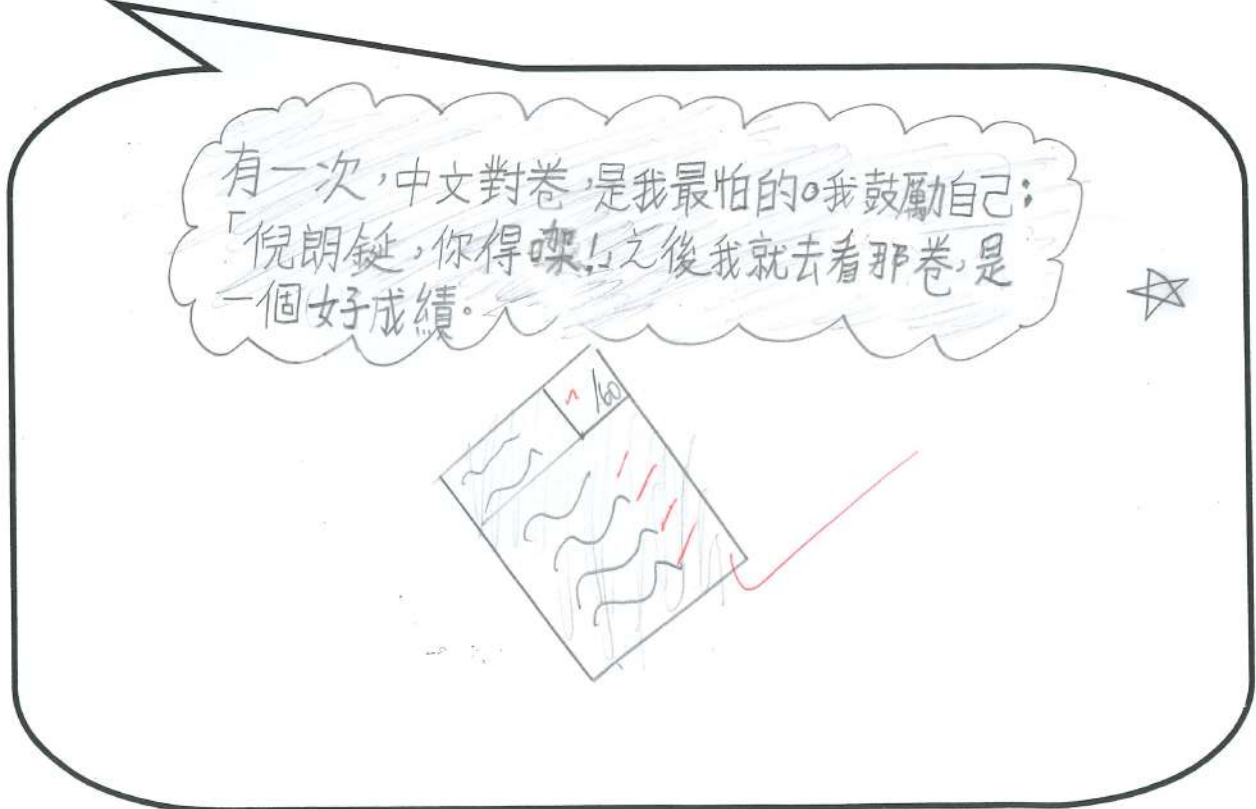 有一次，中文對卷，是我最怕的。我鼓勵自己：
「倪朗鋋，你得㗎！」之後我就去看那卷，是
一個好成績。
/60